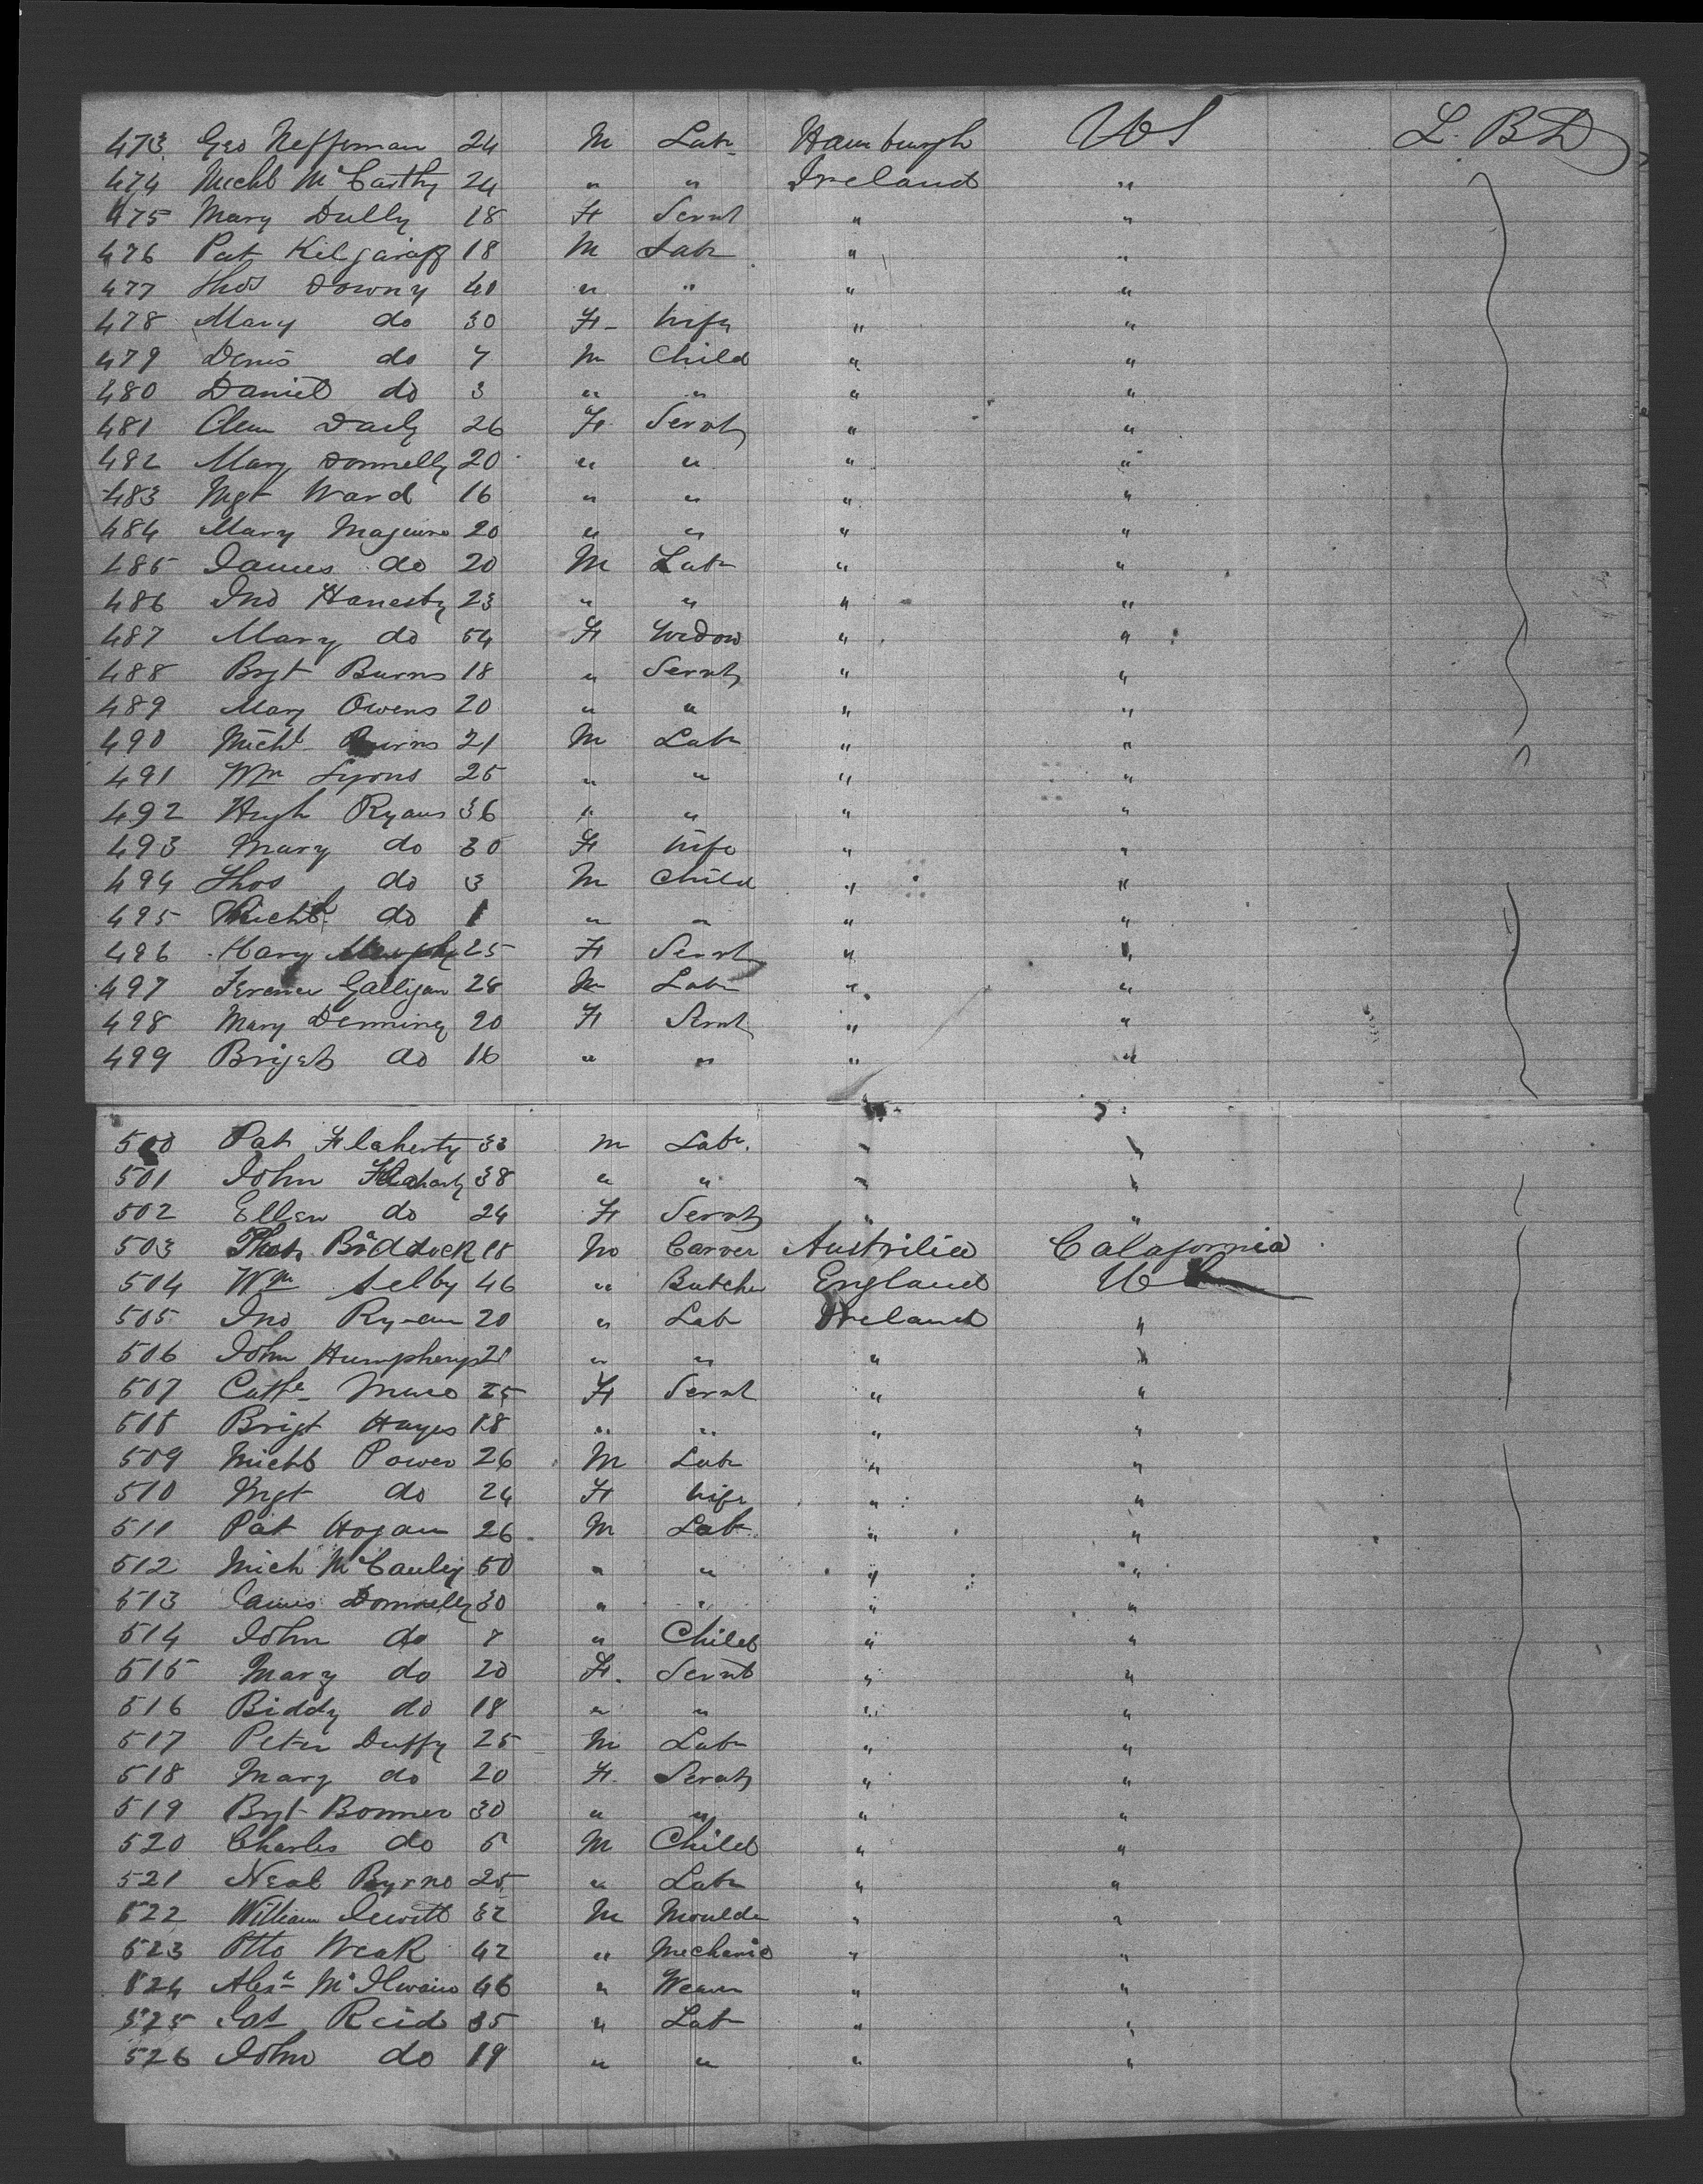 473 Geo Neffernan 24 M Labr Hamburgh US L. B D
474 Michl McCarthy 24 " " Ireland "
475 Mary Dully 18 F Servt " "
476 Pat Kilgariff 18 M Labr " "
477 Thos Downy 40 " " " "
478 Mary do 30 F Wife " "
479 Denis do 7 M Child " "
480 Daniel do 3 " " " "
481 Daily 26 F Servt " "
482 Mary Donnelly 20 " " " "
483 Mgt Ward 16 " " " "
484 Mary Maguire 20 " " " "
485 James do 20 M Labr " "
486 Jno Hanesty 23 " " " "
487 Mary do 54 F Widow " "
488 Bgt Burns 18 " Servt " "
489 Mary Owens 20 " " " "
490 Michl Burns 21 M Labr " "
491 Wm Lyons 25 " " " "
492 Hugh Ryans 36 " " " "
493 Mary do 30 F Wife " "
494 Thos do 3 M Child " "
495 do 1 " " " "
496 Mary Murphy 25 F Servt " "
497 Terence Galligan 28 M Labr " "
498 Mary Denning 20 F Servt " "
499 Briget do 16 " " " "
500 Pat Flaherty 33 M Labr " "
501 John Flaharty 38 " " " "
502 Ellen do 24 F Servt " "
503 Braddock 18 M Carver Australia Calafornia
504 Wm Selby 46 " Butcher England US
505 Jno Ryan 20 " Lab Ireland "
506 John Humpherys 21 " " " "
507 Cathe 25 F Servt " "
508 Brigt Hayes 18 " " " "
509 Michl Power 26 M Labr " "
510 Mgt do 24 F Wife " "
511 Pat Hogan 26 M Lab " "
512 Mich McCauley 50 " " " "
513 James Donnelly 30 " " " "
514 John do 7 " Child " "
515 Mary do 20 F. Servt " "
516 Biddy do 18 " " " "
517 Peter Duffy 25 M Labr " "
518 Mary do 20 F. Servt " "
519 Bgt Bonner 30 " " " "
520 Charles do 5 M Child " "
521 Neal Byrne 25 " Labr " "
522 William Jewitt 32 M Moulder " "
523 Otto Weak 42 " Mechanic " "
524 Alexr McIlwain 46 " Weaver " "
525 Reid 35 " Lab " "
526 John do 19 " " " "